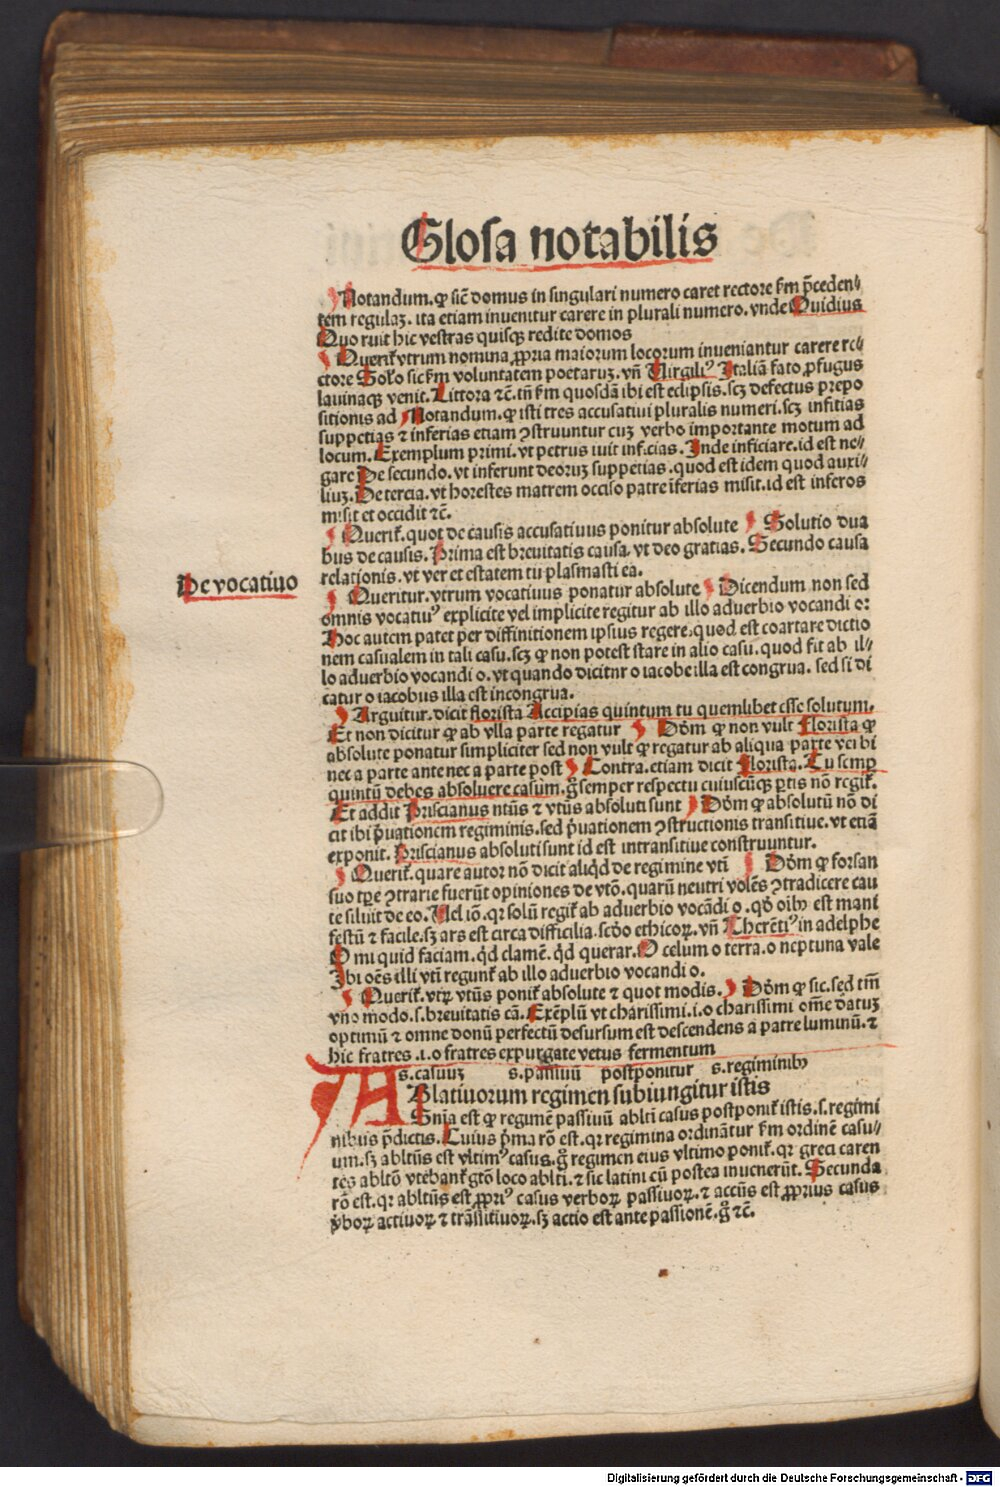 Glosa notabilis
Notandum. ꝙ sic̄ domus in singulari numero caret rectore ẜm p̄ceden⸗
tem regulaꝫ. ita etiam inuenitur carere in plurali numero. vnde Ouidius
Quo ruit hic vestras quisqꝫ redite domos
Querit̉ vtrum nomina ꝓpria maiorum locorum inueniantur carere re⸗
ctore Solo sic ẜm voluntatem poetaruꝫ. vn̄ Virgiliꝰ Italiā fato ꝓfugus
lauinaqꝫ venit. Littora ⁊c̄. tn̄ ẜm quosdā ibi est eclipsis. scꝫ defectus prepo
sitionis ad Notandum. ꝙ isti tres accusatiui pluralis numeri. scꝫ infitias
suppetias ⁊ inferias etiam ꝯstruuntur cuꝫ verbo importante motum ad
locum. Exemplum primi. vt petrus iuit inficias. Inde inficiare. id est ne⸗
gare De secundo. vt inferunt deoruꝫ suppetias. quod est idem quod auxi⸗
liuꝫ. De tercia. vt horestes matrem occiso patre īferias misit. id est inferos
misit et occidit ⁊c̄.
Querit̉. quot de causis accusatiuus ponitur absolute Solutio dua
bus de causis. Prima est breuitatis causa. vt deo gratias. Secundo causa
relationis. vt ver et estatem tu plasmasti ea.
De vocatiuo
Queritur. vtrum vocatiuus ponatur absolute Dicendum non sed
omnis vocatiuꝰ explicite vel implicite regitur ab illo aduerbio vocandi o:
Hoc autem patet per diffinitionem ipsius regere. quod est coartare dictio
nem casualem in tali casu. scꝫ ꝙ non potest stare in alio casu. quod fit ab il⸗
lo aduerbio vocandi o. vt quando dicitnr o iacobe illa est congrua. sed si di
catur o iacobus illa est incongrua.
Arguitur. dicit florista Accipias quintum tu quemlibet esse solutum.
Et non dicitur ꝙ ab vlla parte regatur Dōm ꝙ non vult Florista ꝙ
absolute ponatur simpliciter sed non vult ꝙ regatur ab aliqua parte vei bi
nec a parte ante nec a parte post Contra. etiam dicit Florista. Tu semꝑ
quintū debes absoluere casum. g̊ semper respectu cuiuscūqꝫ ꝑtis nō regit̉.
Et addit Priscianus nt̄us ⁊ vt̄us absoluti sunt Dōm ꝙ absolutū nō di
cit ibi p̄uationem regiminis. sed p̄uationem ꝯstructionis transitiue. vt etiā
exponit. Priscianus absoluti sunt id est intransitiue construuntur.
Querit̉. quare autor nō dicit aliq̇d de regimine vt̄i Dōm ꝙ forsan
suo tꝑe ꝯtrarie fuerūt opiniones de vt̄o. quarū neutri volēs ꝯtradicere cau
te siluit de eo. Vel iō. qꝛ solū regit̉ ab aduerbio vocādi o. qḋ oībꝫ est mani
festū ⁊ facile. sꝫ ars est circa difficilia. scḋo ethicoꝝ. vn̄ Therētiꝰ in adelphe
O mi quid faciam. q̇d clamē. q̇d querar. O celum o terra. o neptuna vale
Ibi oēs illi vt̄i regunt̉ ab illo aduerbio vocandi o.
Querit̉. vtꝝ vt̄us ponit̉ absolute ⁊ quot modis. Dōm ꝙ sic. sed tm̄
vno modo. s. breuitatis cā. Exēplū vt charissimi. i. o charissimi om̄e datuꝫ
optimū ⁊ omne donū perfectū desursum est descendens a patre luminū. ⁊
hic fratres .i. o fratres expurgate vetus fermentum
s. casuuꝫ s. passiuū postponitur s. regiminibꝫ
ABlatiuorum regimen subiungitur istis
Snīa est ꝙ regimē passiuū ablt̄i casus postponit̉ istis. s. regimi
nibus p̄dictis. Cuius p̄ma rō est. qꝛ regimina ordinātur ẜm ordinē casu⸗
um. sꝫ ablt̄us est vltimꝰ casus. g̊ regimen eius vltimo ponit̉. qꝛ greci caren
tes ablt̄o vtebant̉ gt̄o loco ablt̄i. ⁊ sic latini cū postea inuenerūt. Secunda
rō est. qꝛ ablt̄us est ꝓpriꝰ casus verboꝝ passiuoꝝ. ⁊ accūs est ꝓprius casus
v̄boꝝ actiuoꝝ ⁊ trāssitiuoꝝ. sꝫ actio est ante passionē. g̊ ⁊c̄.
Digitalisierung gefördert durch die Deutsche Forschungsgemeinschaft - DFG